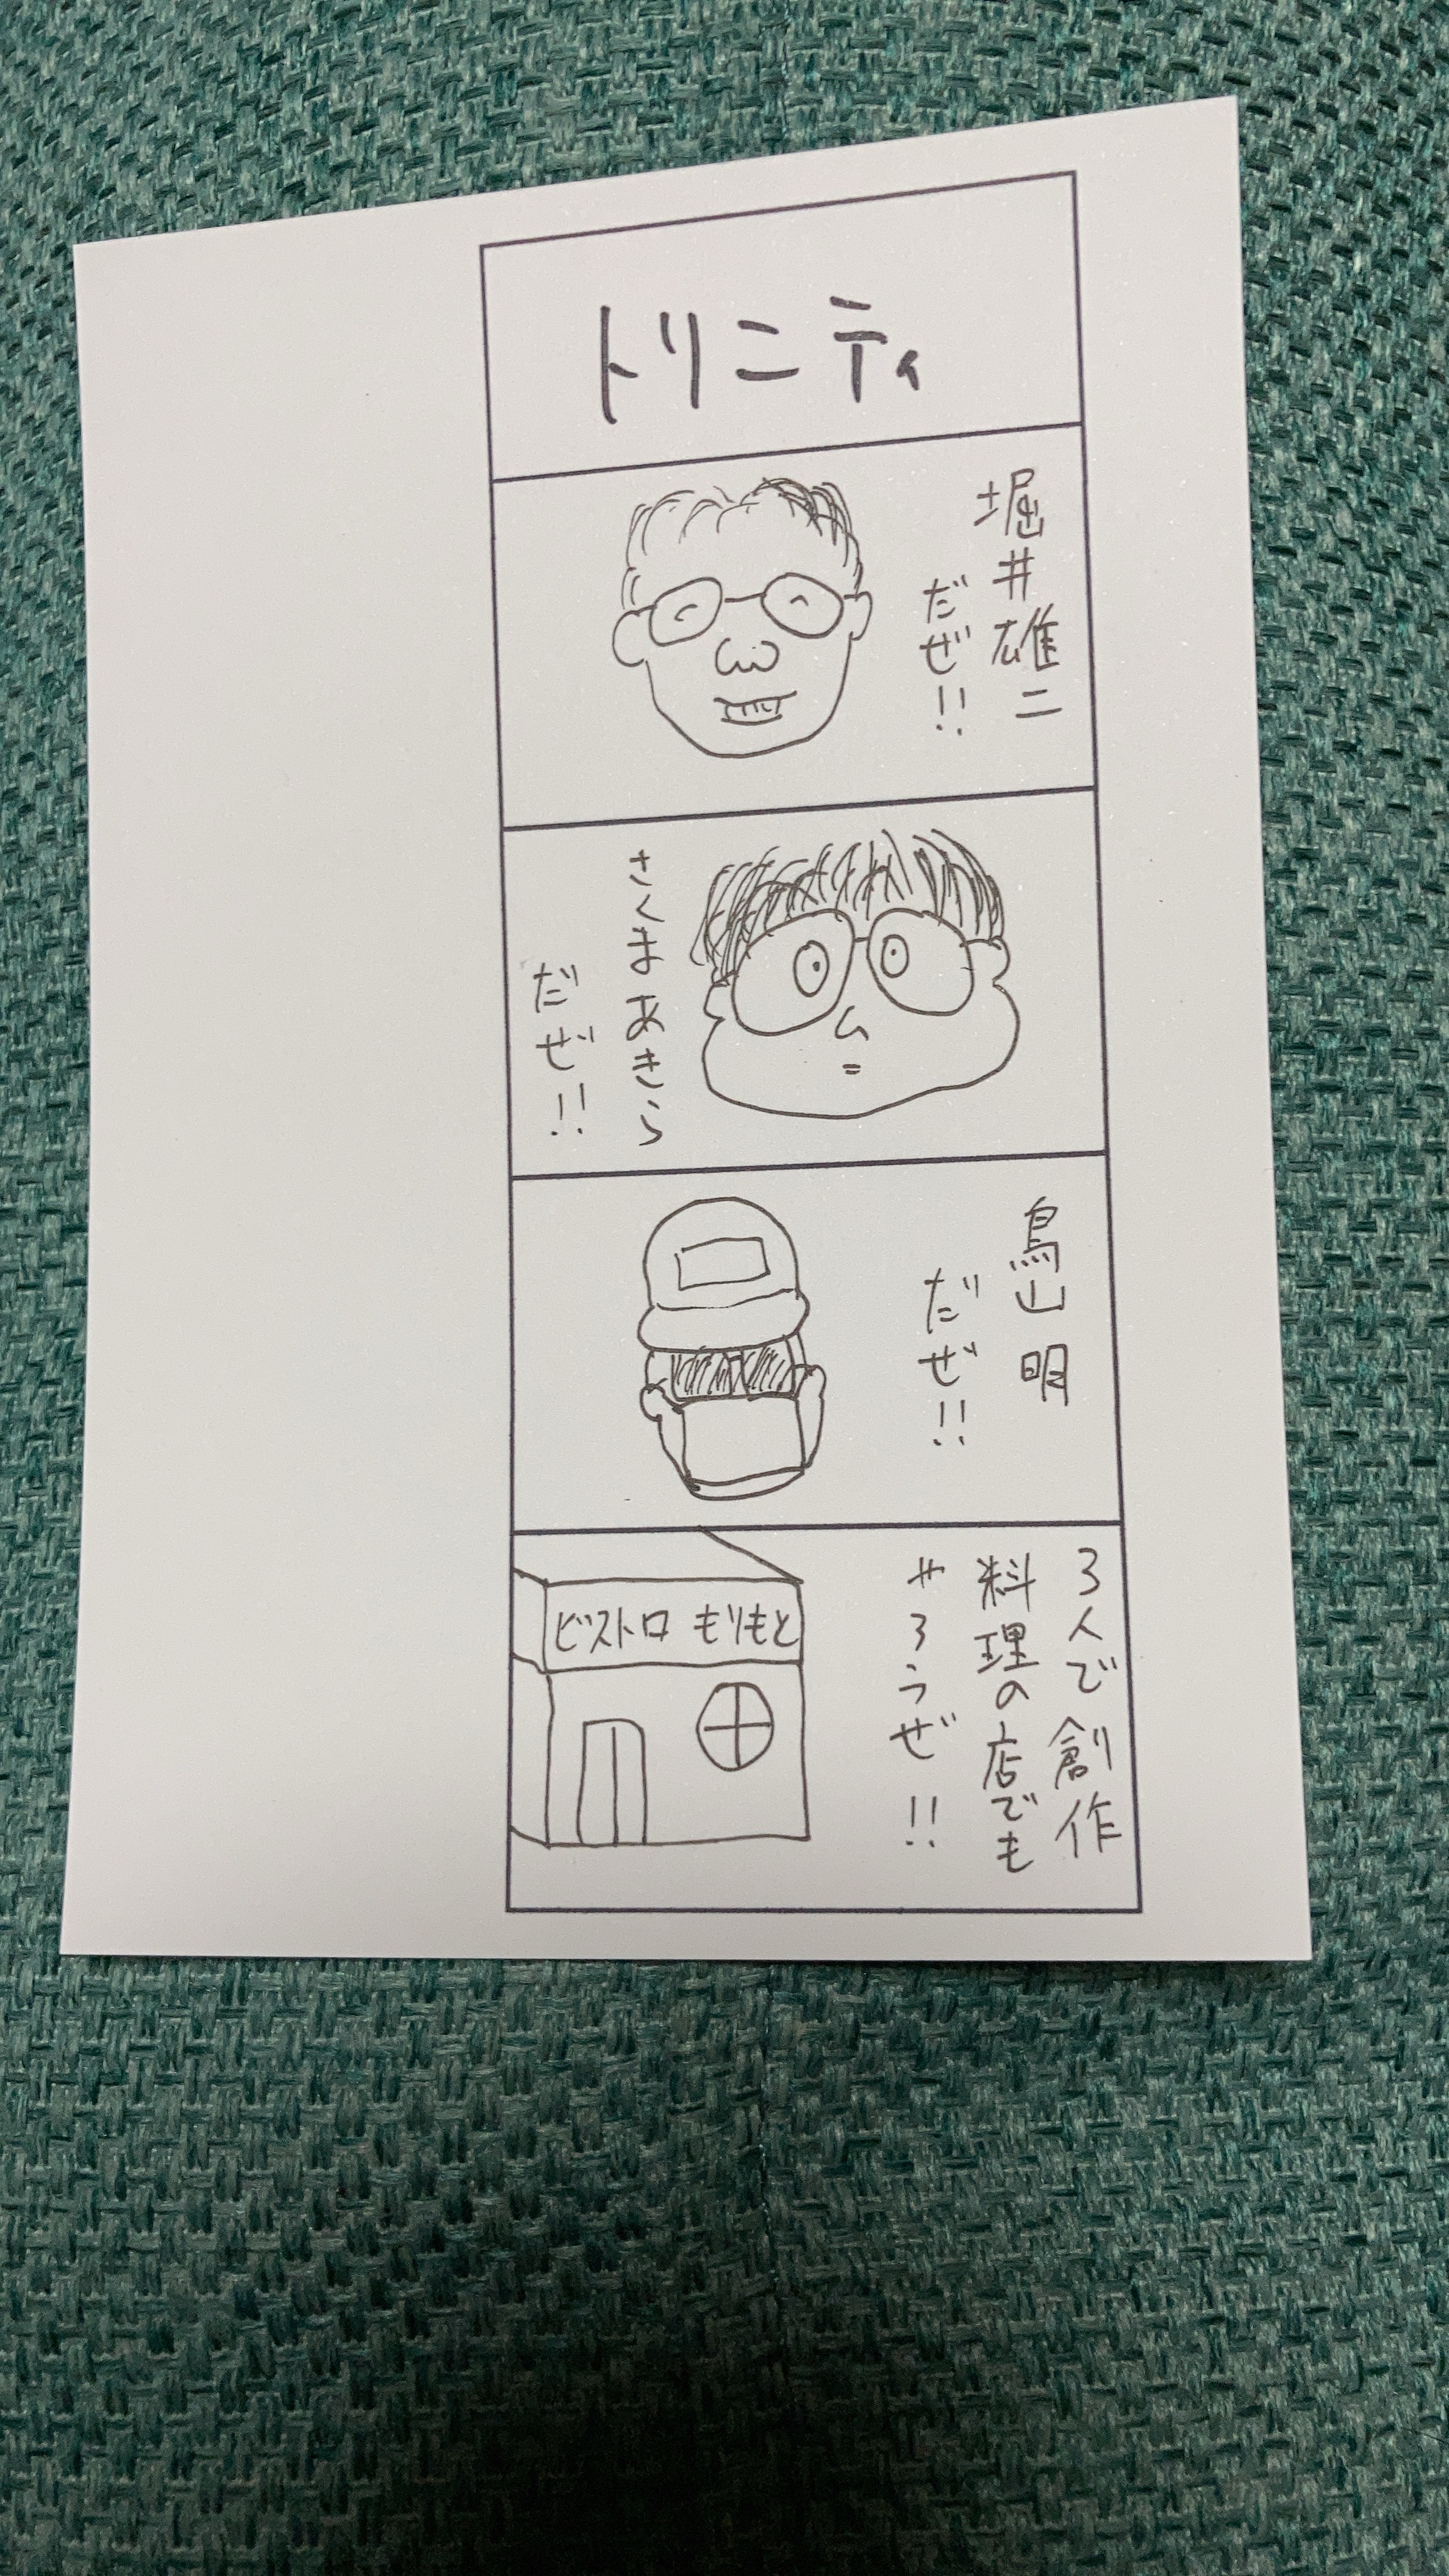 トリニティ
堀井雄二
だぜ!!
さくまあきら
だぜ!!
鳥山明
だぜ!!
3人で創作
料理の店でも
やろうぜ!!
ビストロ もりもと